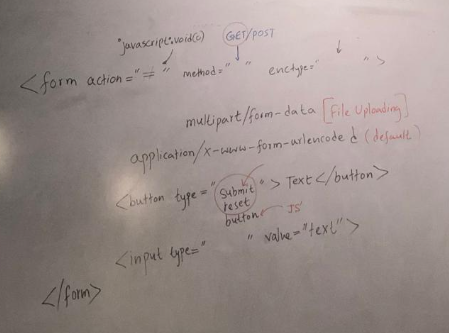 "javascript:void(0) GET/POST
<form action="=" method=" " enctype=" ">
multipart/form-data [File Uploading]
application/x-www-form-urlencoded (default)
<button type="submit"> Text</button>
reset
button JS
<input type=" " value="text">
</form>